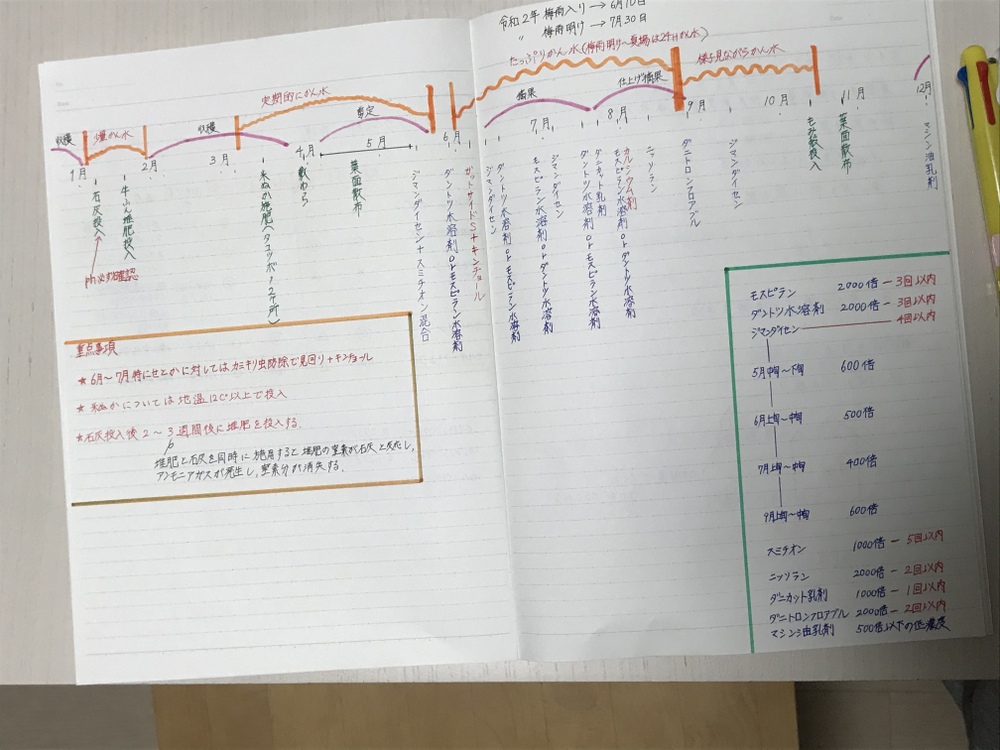 令和2年 梅雨入り → 6月10日
〃 梅雨明け → 7月30日
たっぷりかん水(梅雨明け〜夏場は24Hかん水)
様子見ながらかん水
定期的にかん水
収穫
かん水
収穫
剪定
摘果
仕上げ摘果
1月
2月
3月
4月
5月
6月
7月
8月
9月
10月
11月
12月
石灰投入
PH必ず確認
牛ふん堆肥投入
米ぬか堆肥(タコツボ12ヶ所)
敷わら
葉面散布
ジマンダイセン+スミチオン混合
ダントツ水溶剤orモスピラン水溶剤
ガットサイドS+キンチョール
ジマンダイセン
ダントツ水溶剤orモスピラン水溶剤
モスピラン水溶剤orダントツ水溶剤
ジマンダイセン
ダントツ水溶剤orモスピラン水溶剤
ダニカット乳剤
モスピラン水溶剤orダントツ水溶剤
カルシウム剤
ニッソラン
ダニトロンフロアブル
ジマンダイセン
もみ殻投入
葉面散布
マシン油乳剤
重点事項
★6月〜7月特にせとかに対してはカミキリ虫防除で見回り+キンチョール
★米ぬかについては地温12℃以上で投入
★石灰投入後2〜3週間後に堆肥を投入する。
堆肥と石灰を同時に施用すると堆肥の窒素が石灰と反応し、
アンモニアガスが発生し、窒素分が消失する。
モスピラン 2000倍 − 3回以内
ダントツ水溶剤 2000倍 − 3回以内
ジマンダイセン 4回以内
5月中旬〜下旬 600倍
6月上旬〜中旬 500倍
7月上旬〜中旬 400倍
9月上旬〜中旬 600倍
スミチオン 1000倍 − 5回以内
ニッソラン 2000倍 − 2回以内
ダニカット乳剤 1000倍 − 1回以内
ダニトロンフロアブル 2000倍 − 2回以内
マシン油乳剤 500倍以下の低濃度